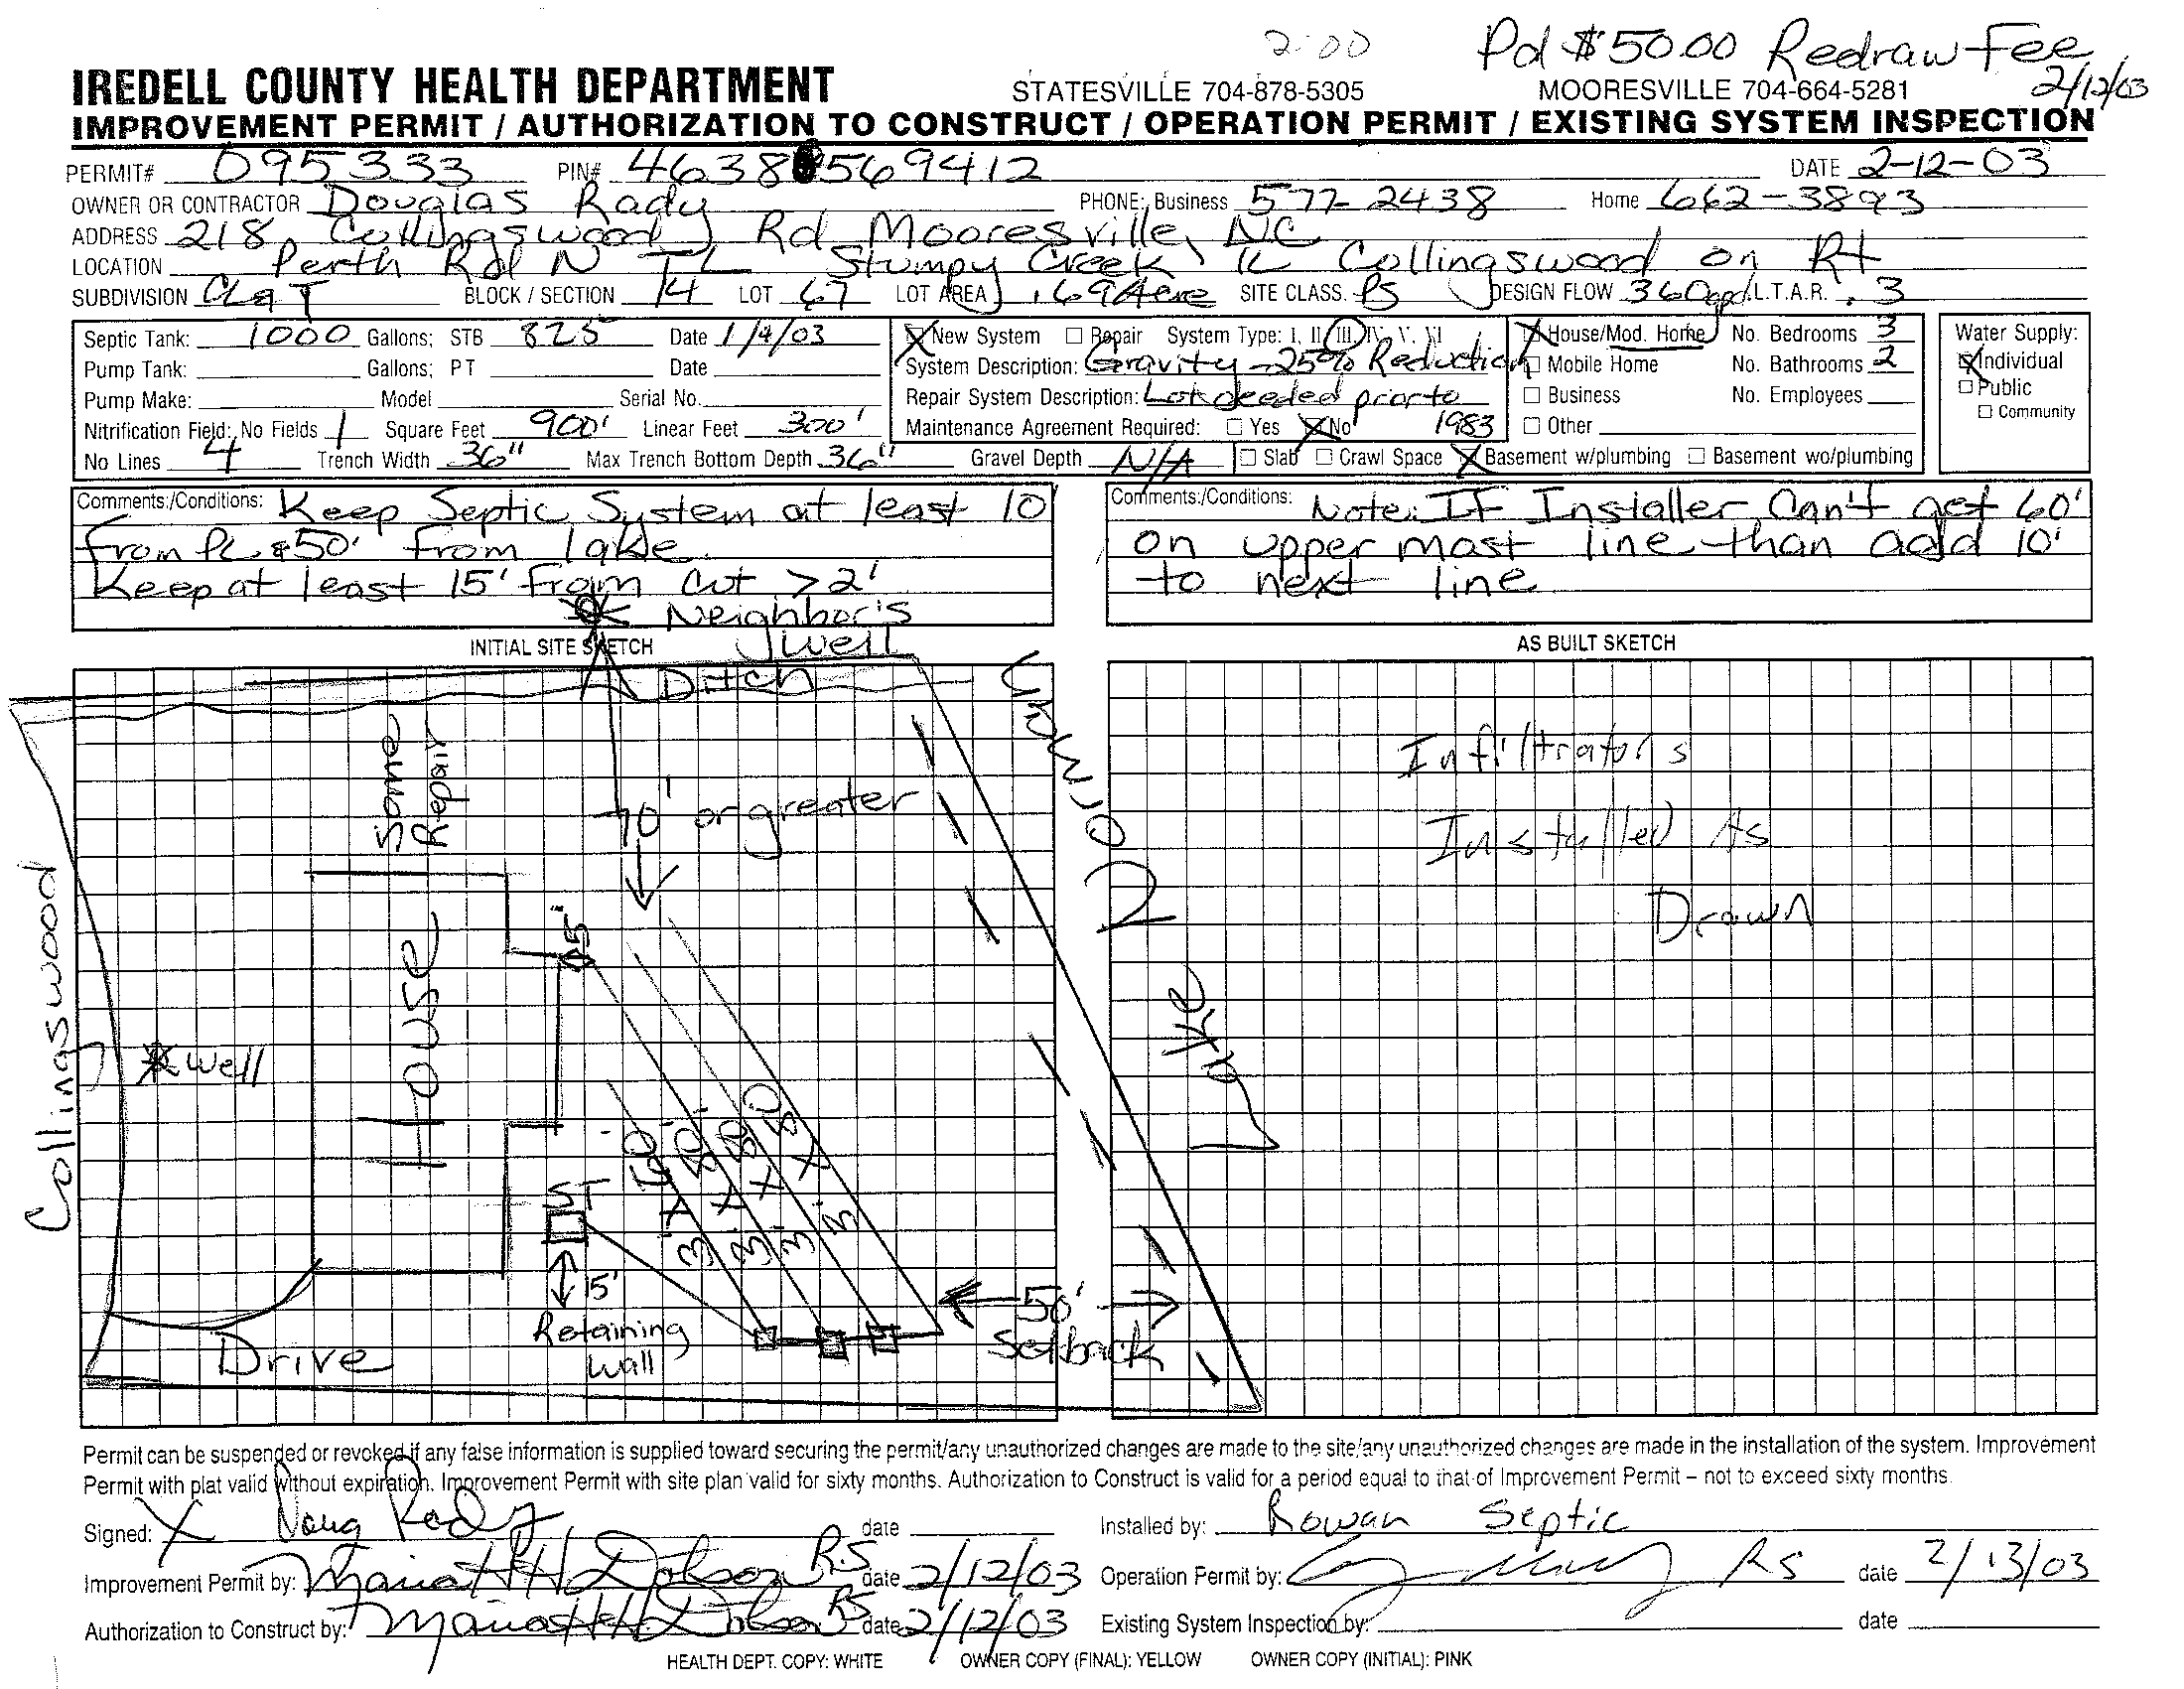 2:00 Pd $50.00 Redraw Fee
2/12/03
IREDELL COUNTY HEALTH DEPARTMENT STATESVILLE 704-878-5305 MOORESVILLE 704-664-5281
IMPROVEMENT PERMIT / AUTHORIZATION TO CONSTRUCT / OPERATION PERMIT / EXISTING SYSTEM INSPECTION
PERMIT# 095333 PIN# 4638 569412 DATE 2-12-03
OWNER OR CONTRACTOR Douglas Rady PHONE: Business 577-2438 Home 662-3893
ADDRESS 218 Collingswood Rd Mooresville, NC
LOCATION Perth Rd N TL Stumpy Creek TL Collingswood on Rt
SUBDIVISION BLOCK / SECTION 14 LOT 67 LOT AREA .69 Acre SITE CLASS. PS DESIGN FLOW 360gpd L.T.A.R. .3
Septic Tank: 1000 Gallons; STB 825 Date 1/4/03
Pump Tank: Gallons; PT Date
Pump Make: Model Serial No.
Nitrification Field: No Fields 1 Square Feet 900' Linear Feet 300'
No Lines 4 Trench Width 36" Max Trench Bottom Depth 36" Gravel Depth N/A
New System Repair System Type: I, II, III, IV, V, VI
System Description: Gravity - 25% Reduction
Repair System Description: Lot deeded prior to
Maintenance Agreement Required: Yes No 1983
Slab Crawl Space Basement w/plumbing Basement wo/plumbing
House/Mod. Home No. Bedrooms 3
Mobile Home No. Bathrooms 2
Business No. Employees
Other
Water Supply:
Individual
Public
Community
Comments:/Conditions: Keep Septic System at least 10'
from PL & 50' from lake
Keep at least 15' from cut >2'
Comments:/Conditions: Note: IF Installer Can't get 60'
on upper most line than add 10'
to next line
Neighbor's
Well
INITIAL SITE SKETCH
AS BUILT SKETCH
Ditch
Some
Repair
70' or greater
Collingswood
House
5'
Well
ST
15'
Retaining
Wall
Drive
3' X 60'
3' X 80'
3' X 80
3' X 80
50'
Setback
Norman
Lake
Infiltrators
Installed As
Drawn
Permit can be suspended or revoked if any false information is supplied toward securing the permit/any unauthorized changes are made to the site/any unauthorized changes are made in the installation of the system. Improvement
Permit with plat valid without expiration. Improvement Permit with site plan valid for sixty months. Authorization to Construct is valid for a period equal to that of Improvement Permit – not to exceed sixty months.
Signed: X Doug Rady date Installed by: Rowan Septic
Improvement Permit by: RS date 2/12/03 Operation Permit by: RS date 2/13/03
Authorization to Construct by: RS date 2/12/03 Existing System Inspection by: date
HEALTH DEPT. COPY: WHITE OWNER COPY (FINAL): YELLOW OWNER COPY (INITIAL): PINK